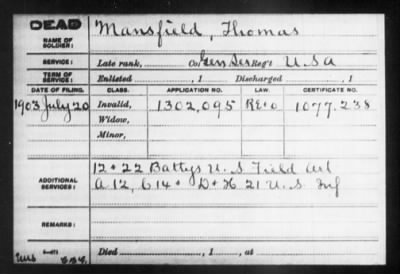 DEAD
NAME OF SOLDIER: Mansfield, Thomas
SERVICE: Late rank, Co. Gen Ser Reg't U.S.A
TERM OF SERVICE: Enlisted , 1 Discharged , 1
DATE OF FILING. CLASS. APPLICATION NO. LAW. CERTIFICATE NO.
1903 July 20 Invalid, 1302,095 1077,238
Widow,
Minor,
ADDITIONAL SERVICES: 12 + 22 Battys U. S. Field Art
A 12, C 14 + D + H. 21 U. S. Inf
REMARKS:
Died , 1 , at